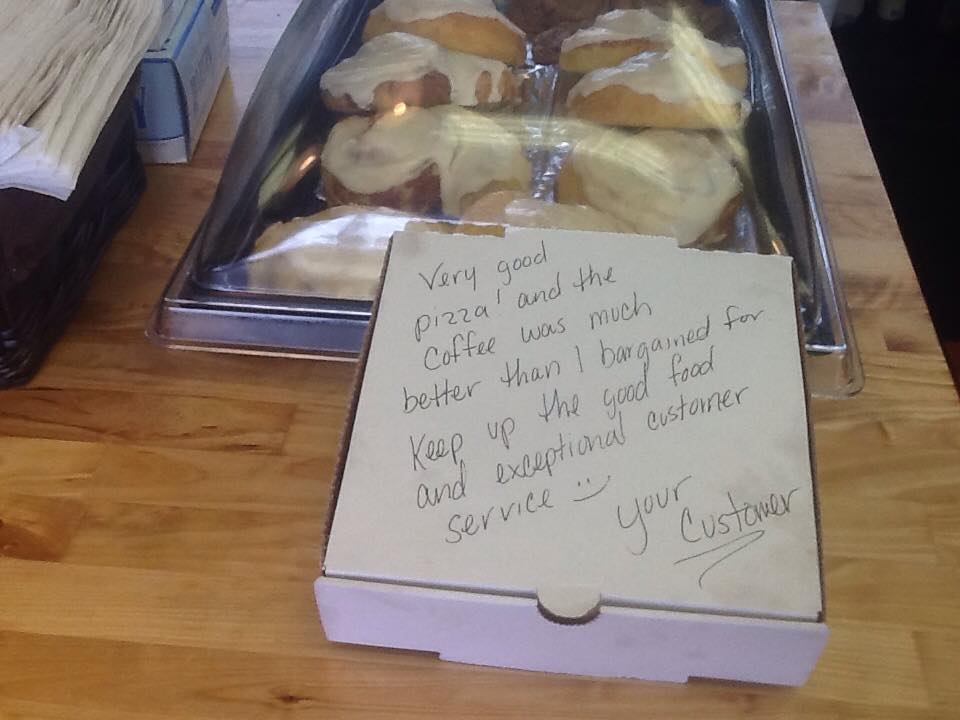 Very good
pizza! and the
Coffee was much
better than I bargained for
Keep up the good food
and exceptional customer
service :)
Your
Customer